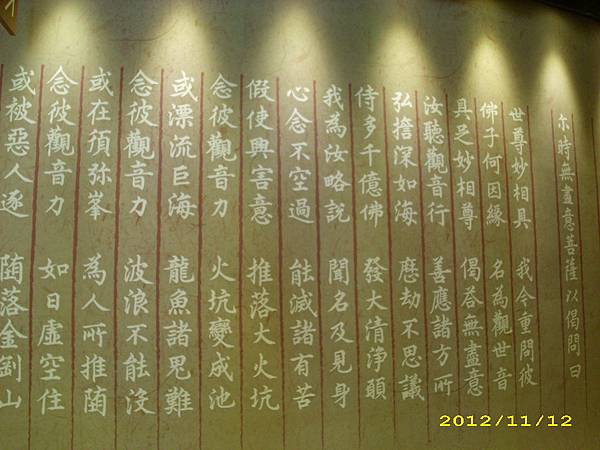 尒時無盡意菩薩以偈問曰
世尊妙相具 我今重問彼
佛子何因緣 名為觀世音
具足妙相尊 偈荅無盡意
汝聽觀音行 善應諸方所
弘擔深如海 歷劫不思議
侍多千億佛 發大清淨願
我為汝略說 聞名及見身
心念不空過 能滅諸有苦
假使興害意 推落大火坑
念彼觀音力 火坑變成池
或漂流巨海 龍魚諸鬼難
念彼觀音力 波浪不能沒
或在須弥峯 為人所推墮
念彼觀音力 如日虛空住
或被惡人逐 墮落金剛山
2012/11/12